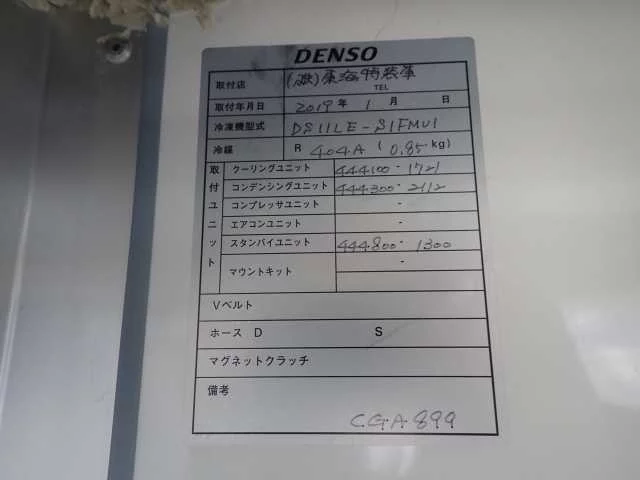 DENSO
取付店 (株)東海特装車
TEL
取付年月日 2019年 1月 日
冷凍機型式 DS11LE-S1FMU1
冷媒 R 404A (0.85kg)
取付ユニット
クーリングユニット 444100-1721
コンデンシングユニット 444300-2112
コンプレッサユニット -
エアコンユニット -
スタンバイユニット 444800-1300
マウントキット -
Vベルト
ホース D S
マグネットクラッチ
備考
CGA899